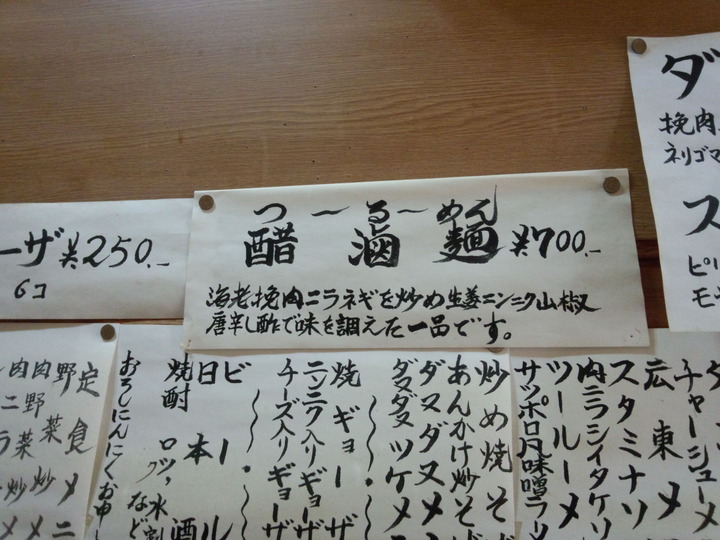 つ〜る〜めん
醋滷麺 ¥700.-
海老挽肉ニラネギを炒め生姜ニンニク山椒
唐辛し酢で味を調えた一品です。
ーザ ¥250.-
6コ
ダ
挽肉
ネリゴマ
ス
ピリ
モ
チャーシューメ
広東メ
スタミナソ
肉ニラシイタケソ
ツールーメ
サッポロ味噌ラー
炒め焼そ
あんかけ炒そば
ダヌダヌメ
ダヌダヌツケメ
焼ギョーザ
ニンニク入りギョーザ
チーズ入りギョーザ
ビール
日本酒
焼酎 ロック、水割など
おろしにんにくお申し
定食メニ
野菜炒メ
肉野菜炒メ
肉ニラ炒メ